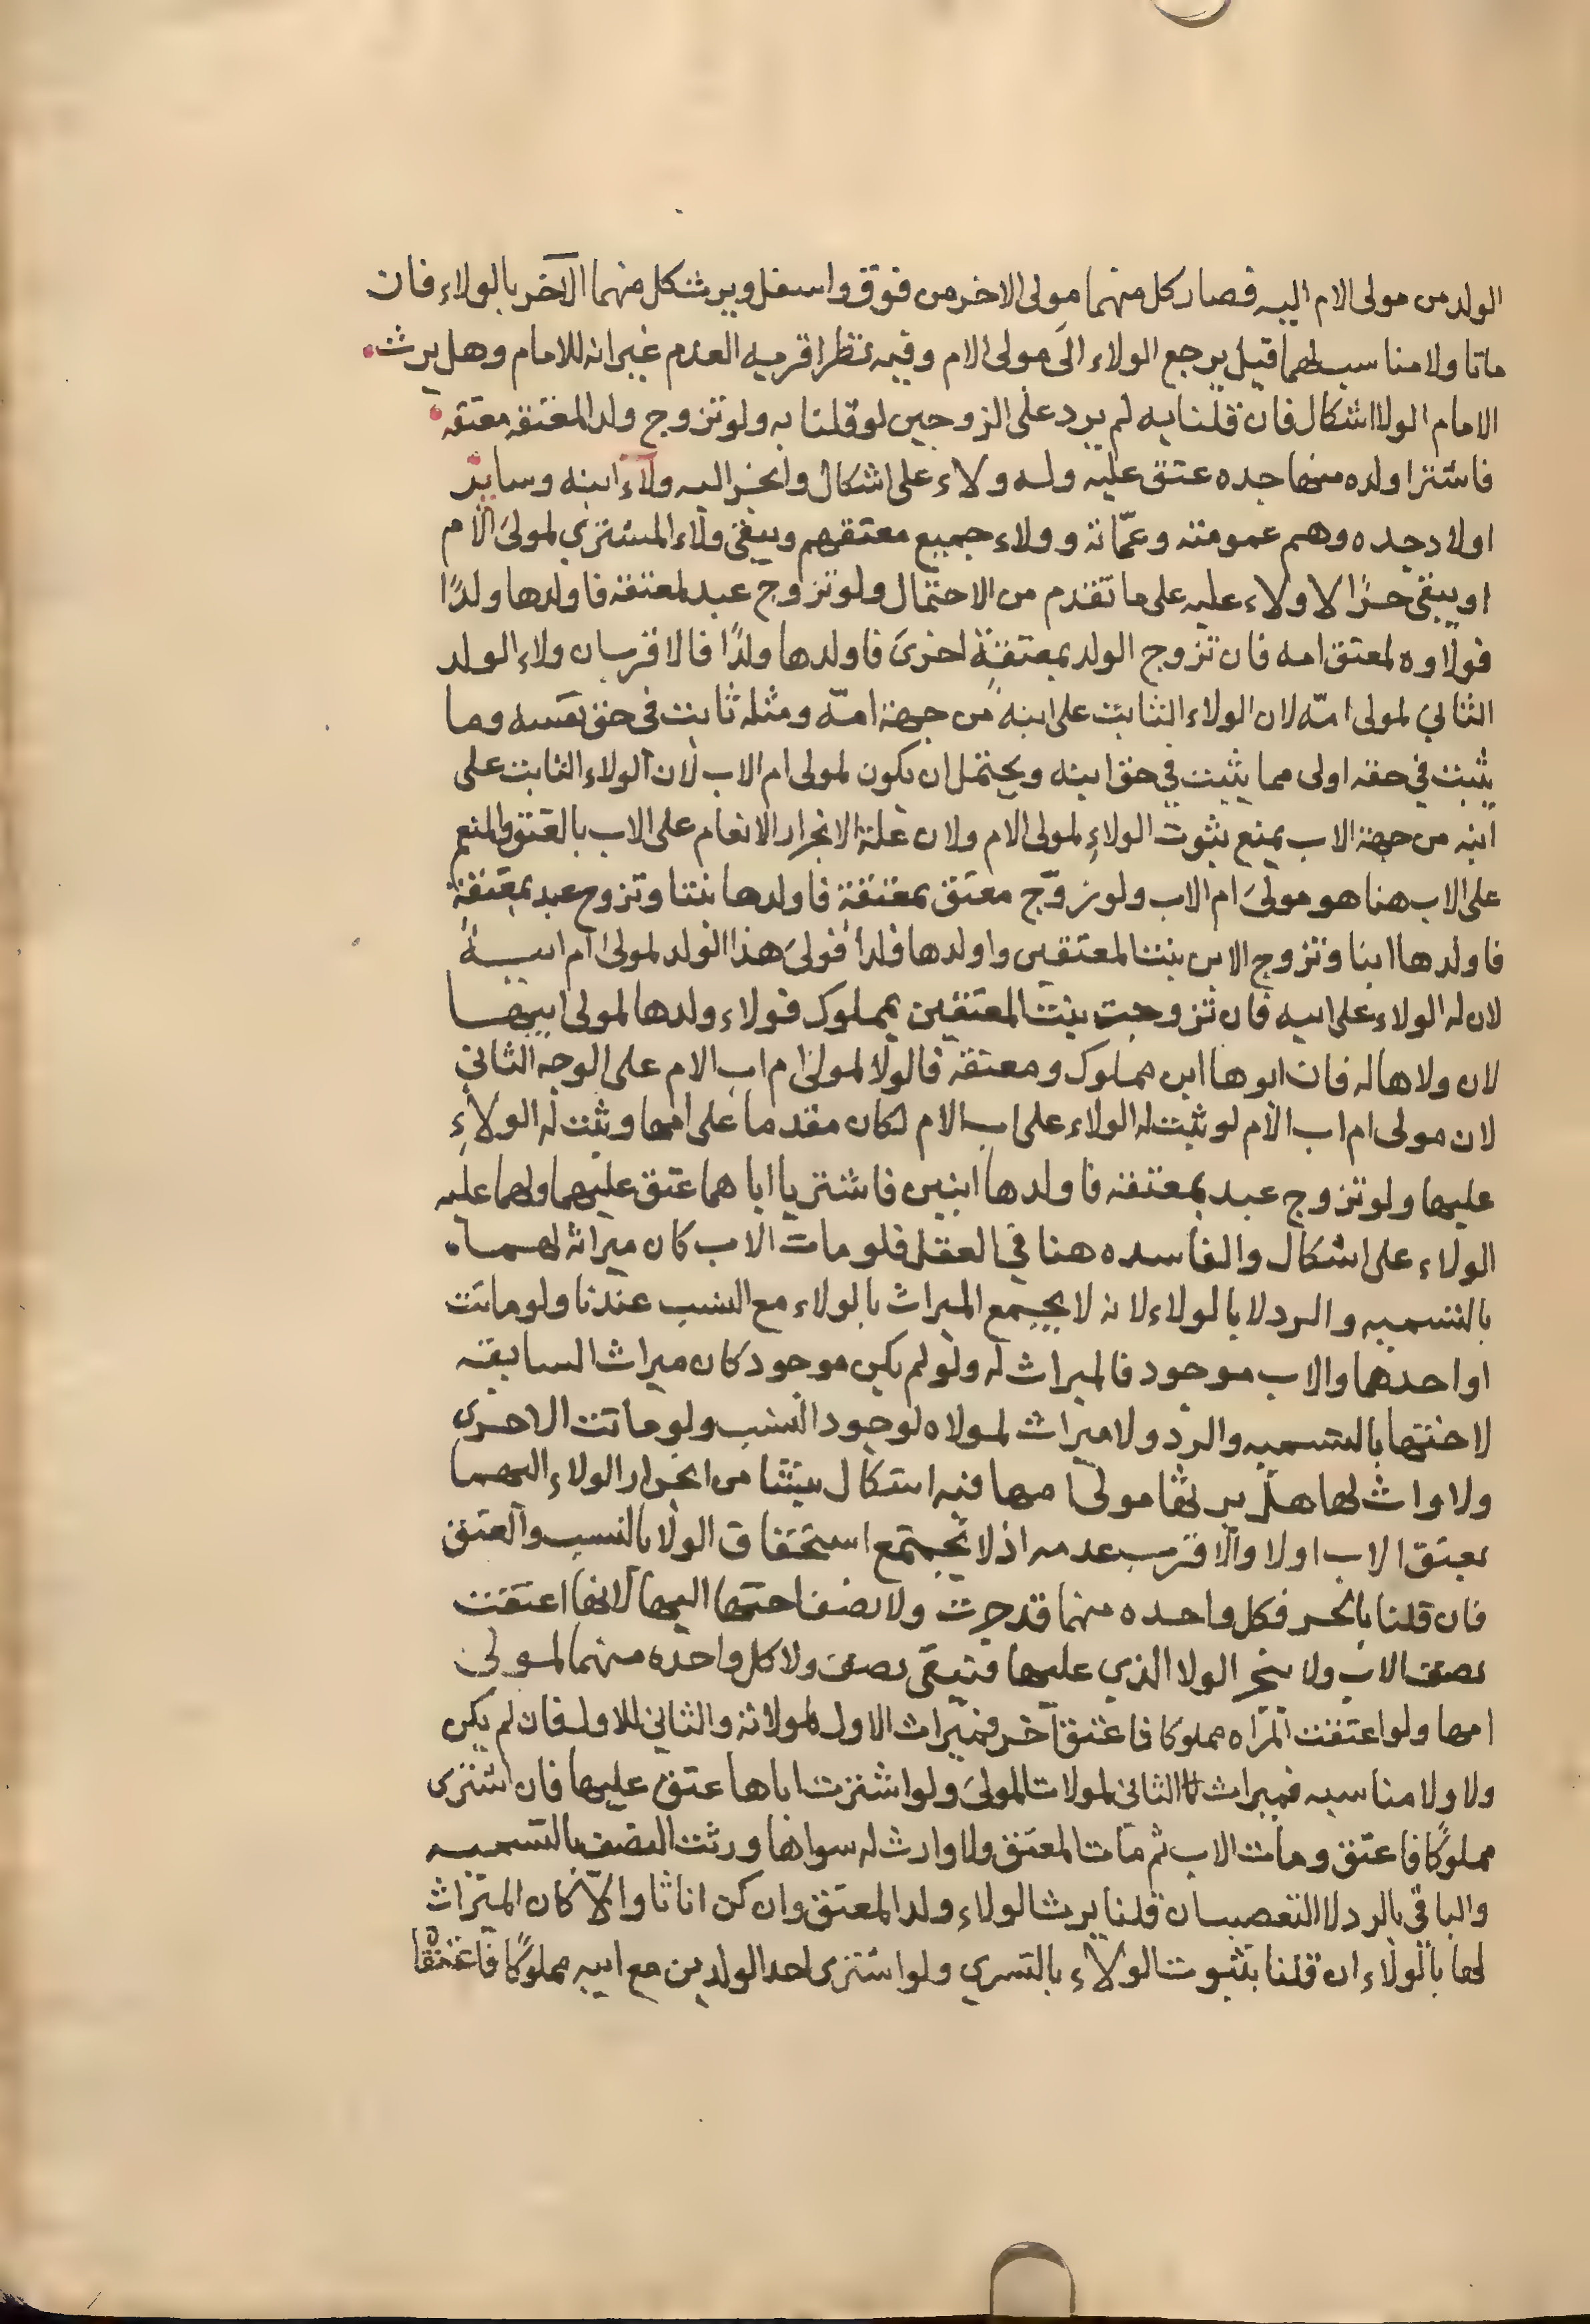 الولد من مولى الام اليه فصار كل منهما مولى الاخر من فوق واسفل ويرث كل منهما الآخر بالولاء فان
ماتا ولا مناسب لهما قيل يرجع الولاء الى مولى الام وفيه نظر اقربه العدم غير انه للامام وهل يرث
الامام الولا اشكال فان قلنا به لم يرد على الزوجين لو قلنا به ولو تزوج ولد المعتقه معتقه
فاشترا ولده منها جده عتق عليه وله ولاء على اشكال وانجر اليه ولاء ابنه وساير
اولاد جده وهم عمومته وعمّاته وولاء جميع معتقهم ويبقى ولاء المشتري لمولى الام
او يبقى حرًا لا ولاء عليه على ما تقدم من الاحتمال ولو تزوج عبد لمعتقه فاولدها ولدًا
فولاوه لمعتق امه فان تزوج الولد بمعتقة اخرى فاولدها ولدًا فالاقرب ان ولاء الولد
الثاني لمولى امّه لان الولاء الثابت على ابنه من جهة امّه ومثله ثابت في حق نفسه وما
يثبت في حقه اولى مما يثبت في حق ابيه ويحتمل ان يكون لمولى ام الاب لان الولاء الثابت على
ابنه من جهة الاب يمنع بثبوت الولاء لمولى الام ولان علة الانجرار الانعام على الاب بالعتق والمنعم
على الاب هنا هو مولى ام الاب ولو زوّج معتق بمعتقة فاولدها بنتا وتزوج عبد بمعتقة
فاولدها ابنا وتزوج الابن بنت المعتقين واولدها فلدا فولى هذا الولد لمولى ام ابيه
لان له الولاء على ابيه فان تزوجت بنت المعتقين بمملوك فولاء ولدها لمولى ابيها
لان ولاها له فان ابوها ابن مملوك ومعتقه فالولا لمولى ام اب الام على الوجه الثاني
لان مولى ام اب الام لو ثبت له الولاء على اب الام لكان مقدما على امها وثبت له الولاء
عليها ولو تزوج عبد بمعتقه فاولدها ابنين فاشتريا اباهما عتق عليهما ولهما عليه
الولاء على اشكال والفاسده هنا في العقل فلو مات الاب كان ميراثه لهما
بالتسميه والرد لا بالولاء لانه لا يجتمع الميراث بالولاء مع النسب عندنا ولو ماتت
او احدهما والاب موجود فالميراث له ولو لم يكن موجود كان ميراث السابقه
لاختها بالتسميه والرد ولا ميراث لمولاه لوجود النسب ولو ماتت الاخرى
ولا واث لها هل يرثها مولى امها فيه اشكال ينشا من انجرار الولاء اليهما
بعتق الاب اولا والاقرب عدمه اذ لا يجتمع استحقاق الولا بالنسب والعتق
فان قلنا بالجر فكل واحده منهما قد جرت ولا نصف اختها اليها لانها اعتقت
نصف الاب ولا ينجر الولا الذي عليها فتبقى نصف ولا كل واحده منهما لمولى
امها ولو اعتقت المراه مملوكا فاعتق آخر فميراث الاول لمولاته والثاني للاول فان لم يكن
ولا ولا مناسبه فميراث الثاني لمولات المولى ولو اشترت اباها عتق عليها فان اشترى
مملوكًا فاعتق ومات الاب ثم مات المعتق ولا وارث له سواها ورثت النصف بالتسميه
والباقي بالرد لا التعصيب ان قلنا يرث الولاء ولد المعتق وان كن اناثا والّا كان الميراث
لها بالولاء ان قلنا بثبوت الولاء بالتسري ولو اشترى احد الولدين مع ابيه مملوكًا فاعتقا